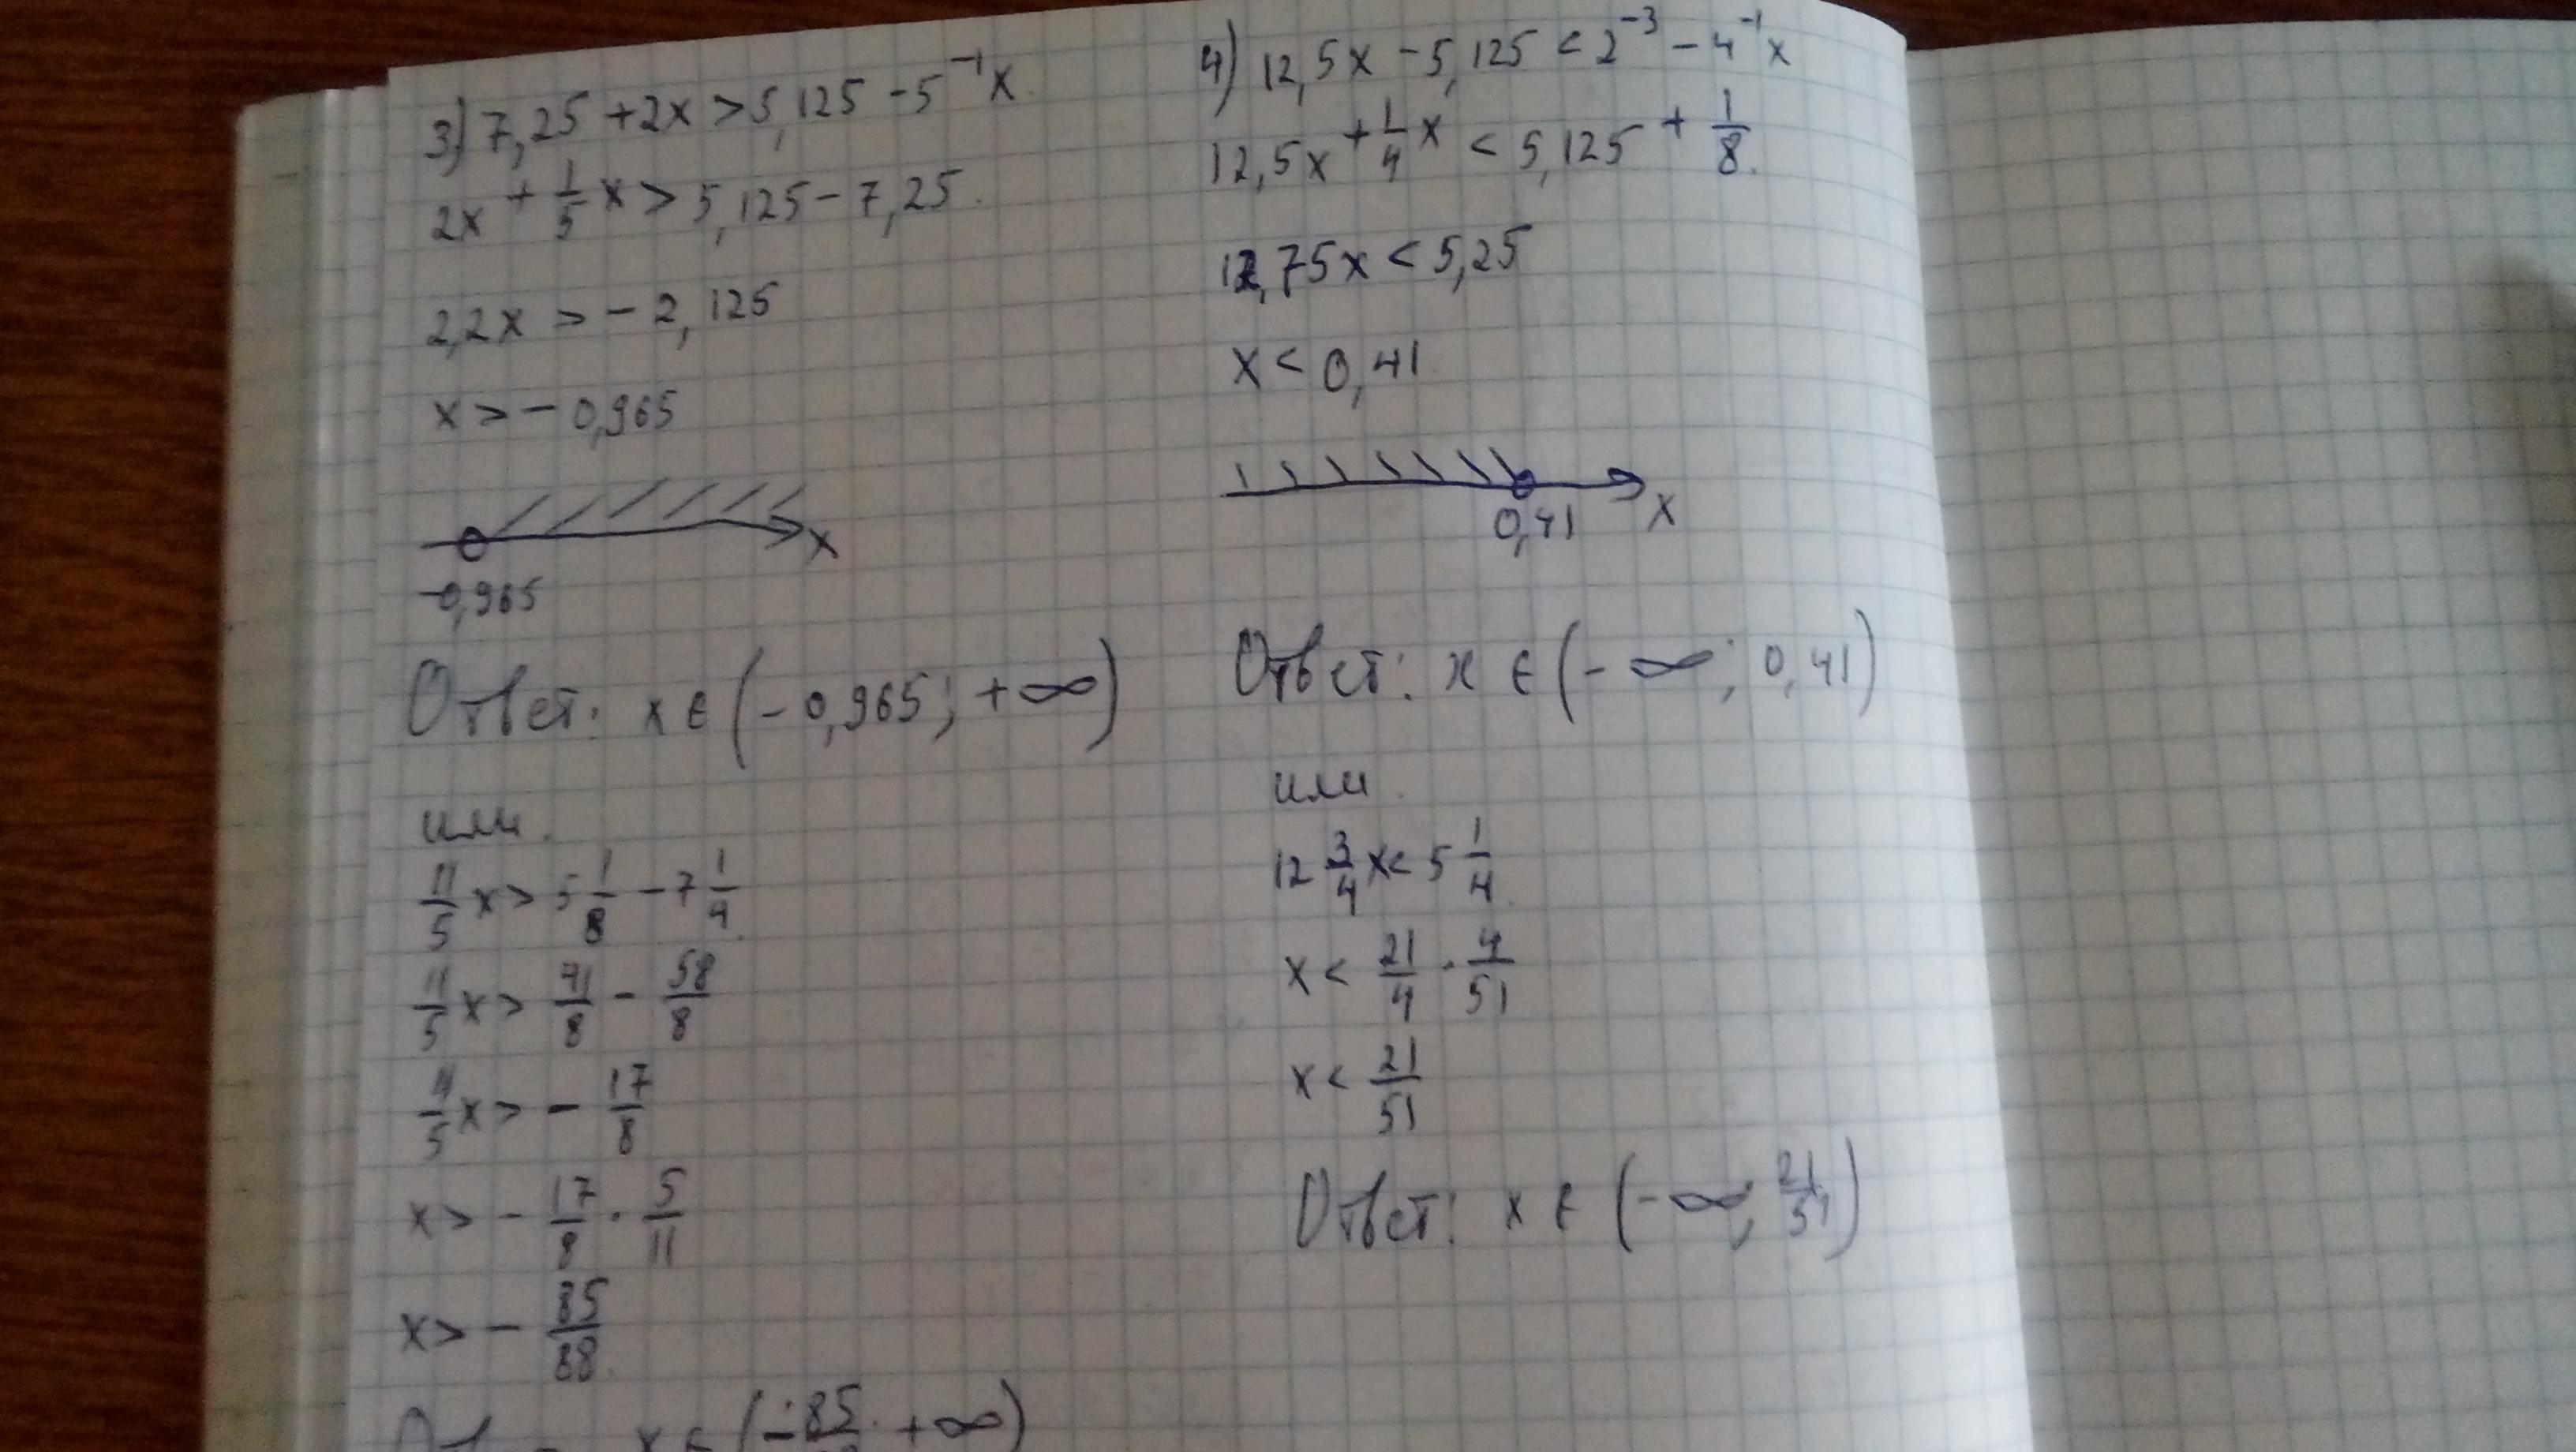 3) 7,25 + 2x > 5,125 - 5⁻¹x
2x + 1/5 x > 5,125 - 7,25
2,2x > - 2,125
x > - 0,965
x
-0,965
Ответ: x ∈ (- 0,965; +∞)
или
11/5 x > 5 1/8 - 7 1/4
11/5 x > 41/8 - 58/8
11/5 x > - 17/8
x > - 17/8 · 5/11
x > - 85/88
x ∈ (-85 +∞)
4) 12,5x - 5,125 < 2⁻³ - 4⁻¹x
12,5x + 1/4 x < 5,125 + 1/8
12,75x < 5,25
x < 0,41
0,41 x
Ответ: x ∈ (- ∞; 0,41)
или
12 3/4 x < 5 1/4
x < 21/4 · 4/51
x < 21/51
Ответ: x ∈ (-∞; 21/51)